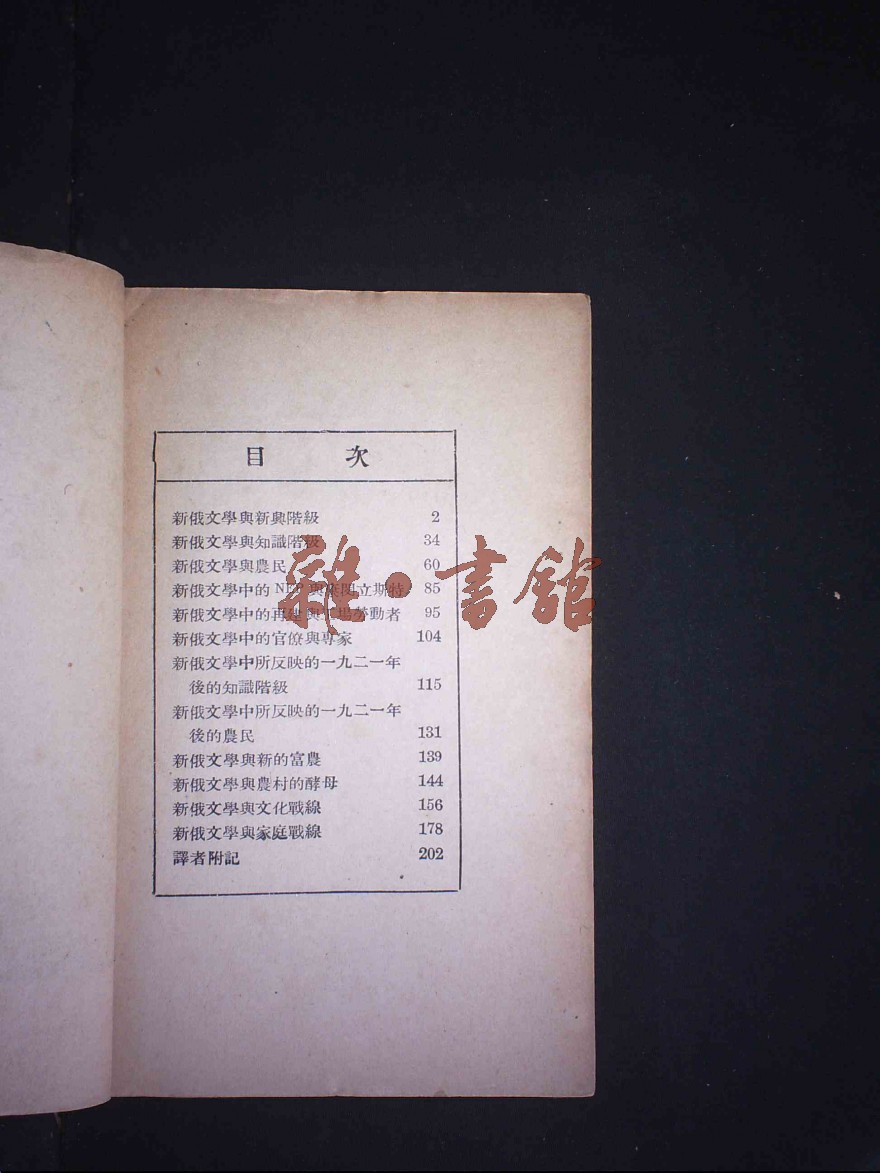 目 次
新俄文學與新興階級 2
新俄文學與知識階級 34
新俄文學與農民 60
新俄文學中的 NEP 與 立斯特 85
新俄文學中的再建與工場勞動者 95
新俄文學中的官僚與專家 104
新俄文學中所反映的一九二一年
後的知識階級 115
新俄文學中所反映的一九二一年
後的農民 131
新俄文學與新的富農 139
新俄文學與農村的酵母 144
新俄文學與文化戰線 156
新俄文學與家庭戰線 178
譯者附記 202
雜·書館